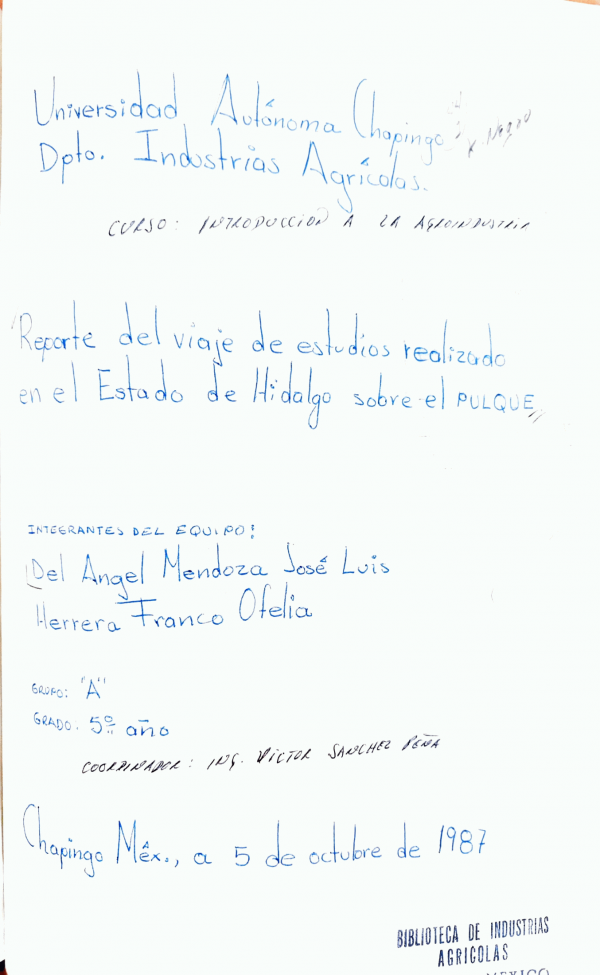 Universidad Autónoma Chapingo
Dpto. Industrias Agrícolas.
CURSO: INTRODUCCION A LA AGROINDUSTRIA
"Reporte del viaje de estudios realizado
en el Estado de Hidalgo sobre el PULQUE"
INTEGRANTES DEL EQUIPO:
Del Angel Mendoza José Luis
Herrera Franco Ofelia
GRUPO: "A"
GRADO. 5º año
COORDINADOR: ING. VICTOR SANCHEZ PEÑA
Chapingo Méx., a 5 de octubre de 1987
BIBLIOTECA DE INDUSTRIAS
AGRICOLAS
MEXICO